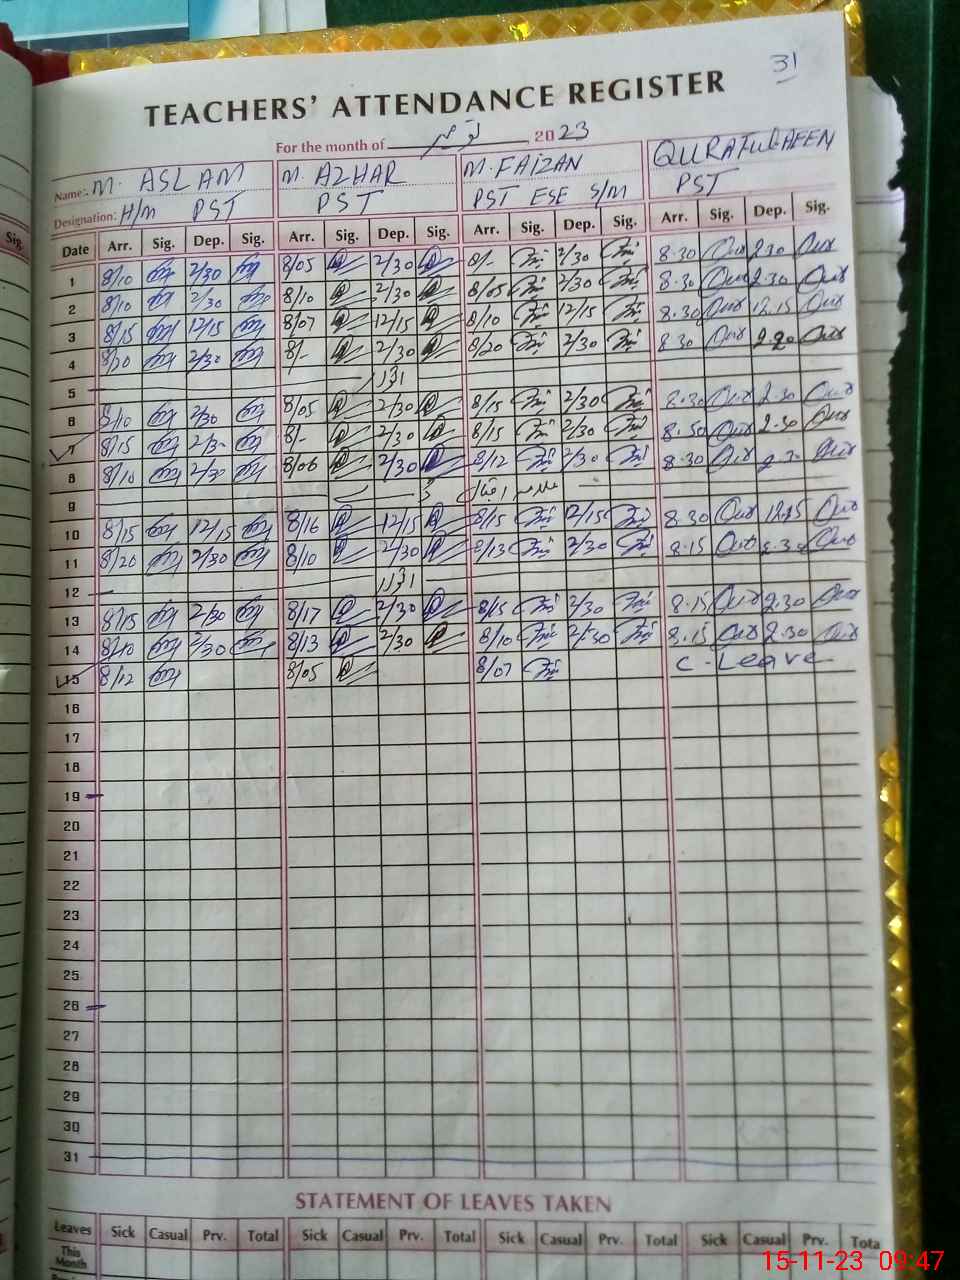 31
TEACHERS' ATTENDANCE REGISTER
For the month of نومبر 2023
Name: M. ASLAM M. AZHAR M. FAIZAN QURATULAEEN
Designation: H/M PST PST PST ESE S/M PST
Sig. Date Arr. Sig. Dep. Sig. Arr. Sig. Dep. Sig. Arr. Sig. Dep. Sig. Arr. Sig. Dep. Sig.
1 8/10 2/30 8/05 2/30 8/- 2/30 8.30 2.30
2 8/10 2/30 8/10 2/30 8/05 2/30 8.30 2.30
3 8/15 12/15 8/07 12/15 8/10 12/15 8.30 12.15
4 8/20 2/30 8/- 2/30 8/20 2/30 8.30 2.20
5 اتوار
6 8/10 2/30 8/05 2/30 8/15 2/30 8.30 2.30
7 8/15 2/30 8/- 2/30 8/15 2/30 8.30 2.30
8 8/10 2/30 8/06 2/30 8/12 2/30 8.30 2.30
9 اقبال
10 8/15 12/15 8/16 12/15 8/15 12/15 8.30 12.15
11 8/20 2/30 8/10 2/30 8/13 2/30 8.15 2.30
12 اتوار
13 8/15 2/30 8/17 2/30 8/15 2/30 8.15 2.30
14 8/10 2/30 8/13 2/30 8/10 2/30 8.15 2.30
15 8/12 8/05 8/07 C-Leave
16
17
18
19
20
21
22
23
24
25
26
27
28
29
30
31
STATEMENT OF LEAVES TAKEN
Leaves Sick Casual Prv. Total Sick Casual Prv. Total Sick Casual Prv. Total Sick Casual Prv. Tota
This
Month
15-11-23 09:47